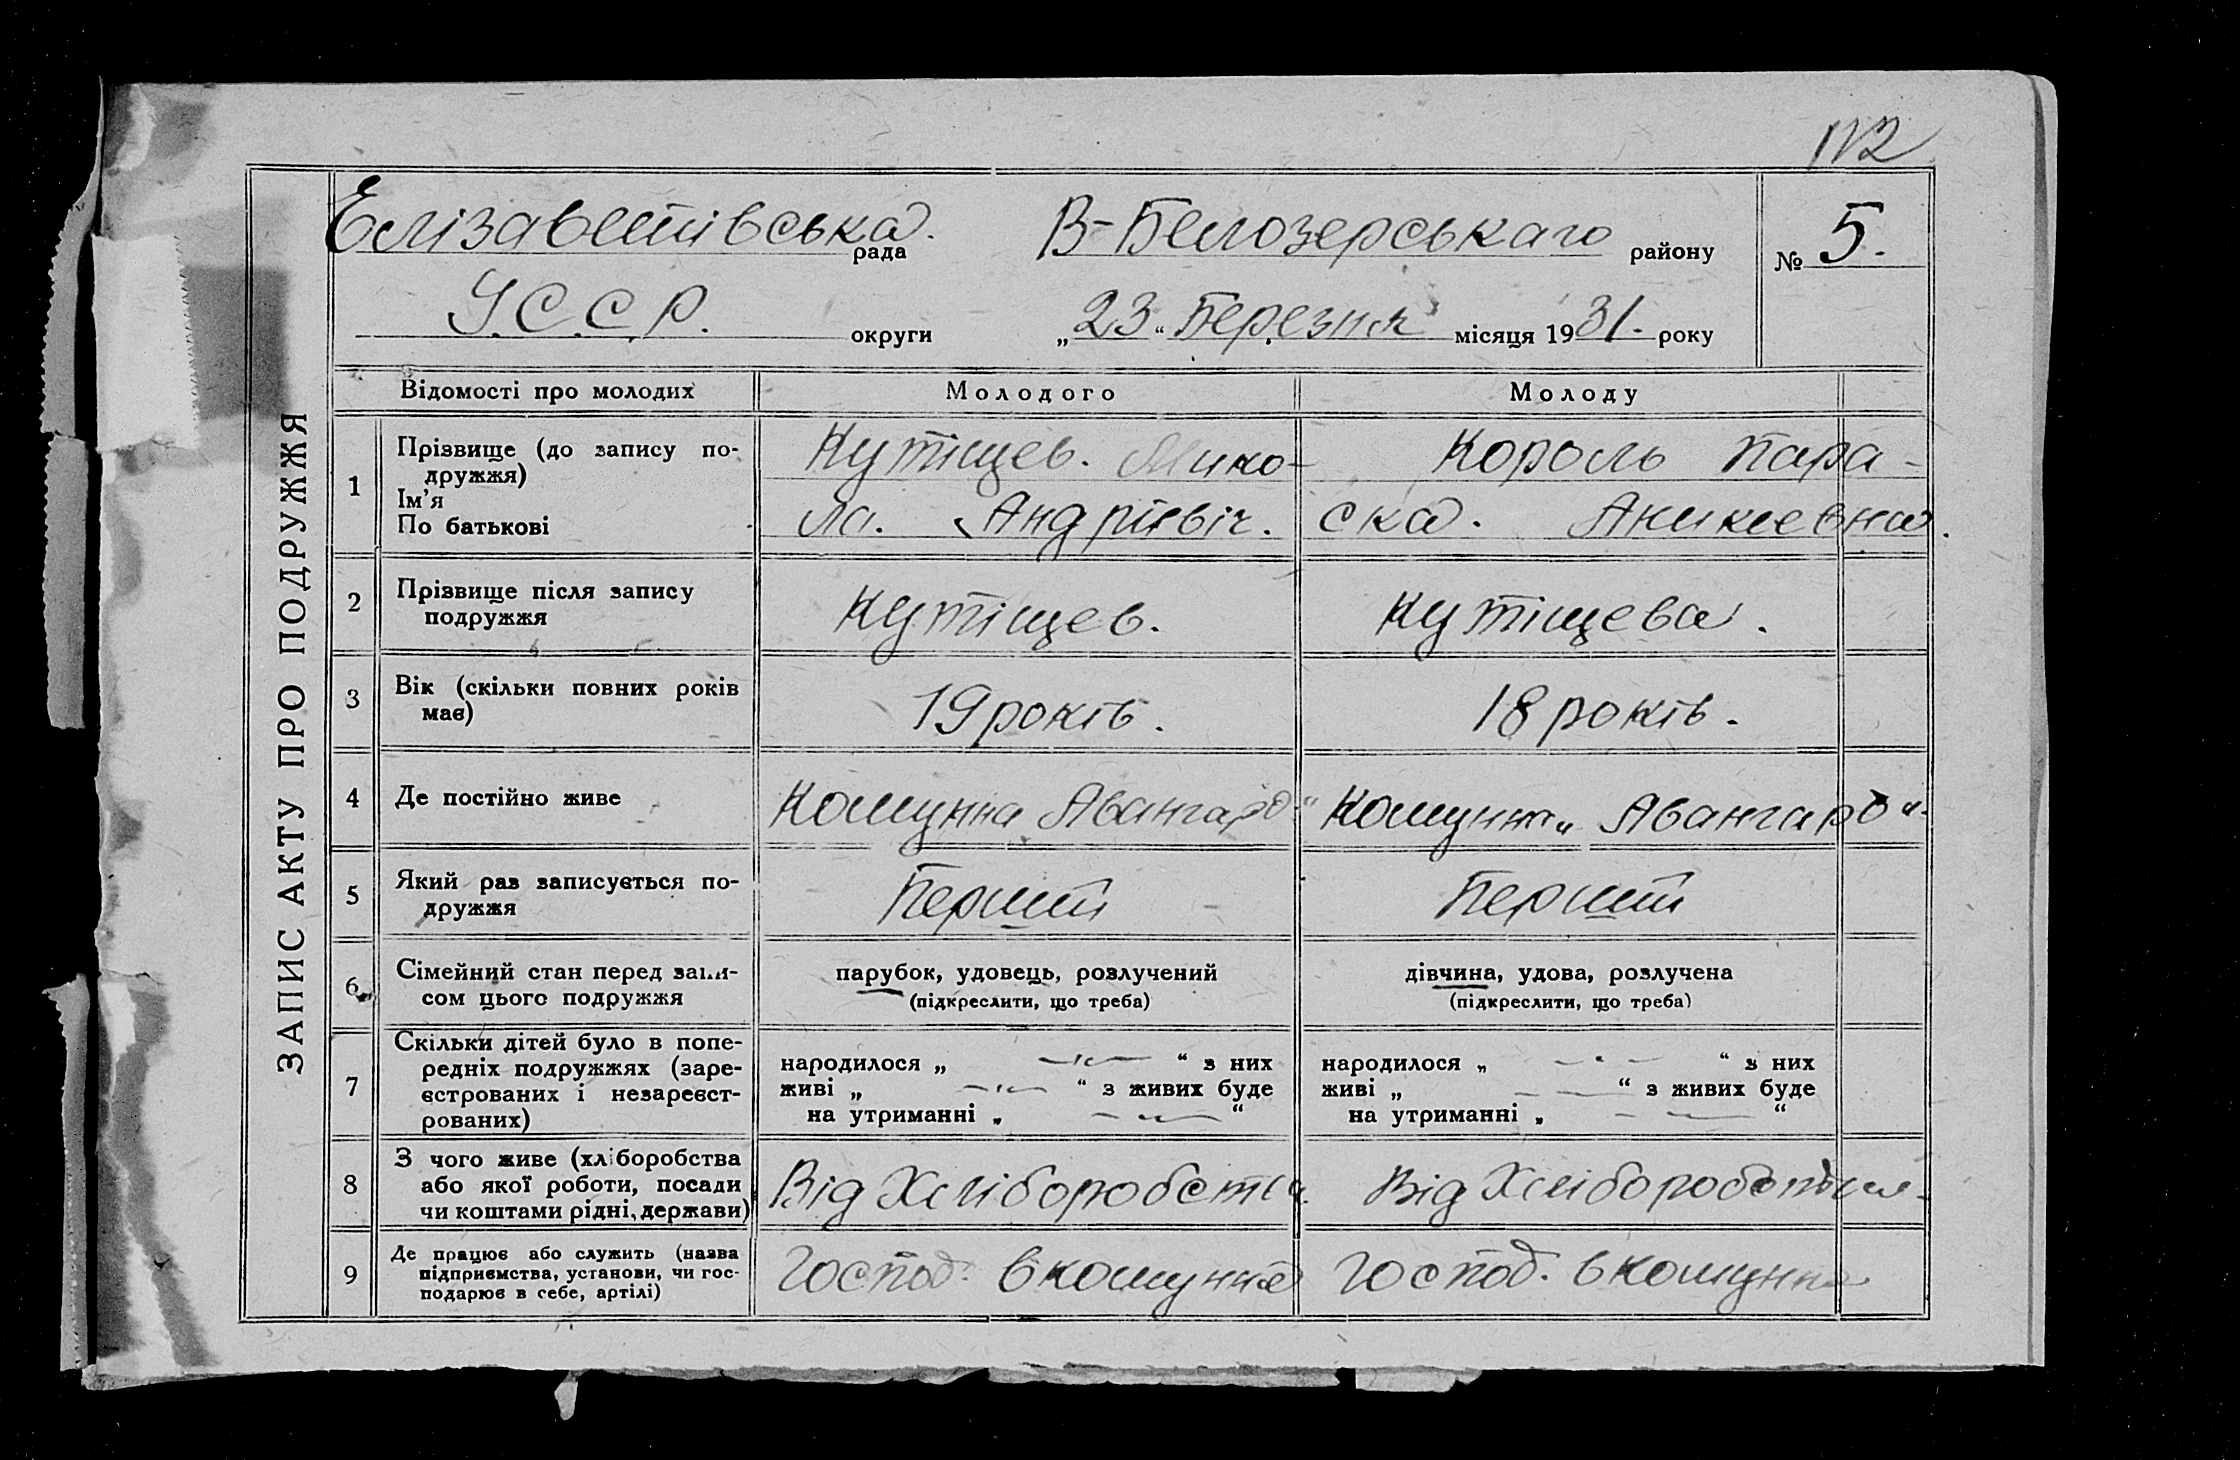 112
Елізаветівська рада В-Белозерськаго району № 5.
У.С.С.Р. округи „23“ Березня місяця 1931. року
ЗАПИС АКТУ ПРО ПОДРУЖЖЯ
Відомості про молодих Молодого Молоду
1 Прізвище (до запису по-
дружжя)
Ім’я
По батькові
Кутіщев. Мико-
ла. Андрієвіч.
Король Пара-
ска. Аникеевна.
2 Прізвище після запису
подружжя
Кутіщев. Кутіщева.
3 Вік (скільки повних років
має)
19 років. 18 років.
4 Де постійно живе
Комунна Авангард“ Комунна „Авангард“.
5 Який раз записується по-
дружжя
Перший Перший
6 Сімейний стан перед запи-
сом цього подружжя
парубок, удовець, розлучений
(підкреслити, що треба)
дівчина, удова, розлучена
(підкреслити, що треба)
7 Скільки дітей було в попе-
редніх подружжях (заре-
єстрованих і незареєст-
рованих)
народилося „ — “ з них
живі „ — “ з живих буде
на утриманні „ — “
народилося „ — “ з них
живі „ — “ з живих буде
на утриманні „ — “
8 З чого живе (хліборобства
або якої роботи, посади
чи коштами рідні, держави)
Від Хліборобства. Від Хліборобства.
9 Де працює або служить (назва
підприємства, установи, чи гос-
подарює в себе, артілі)
Господ. в комунне Господ. в комунне